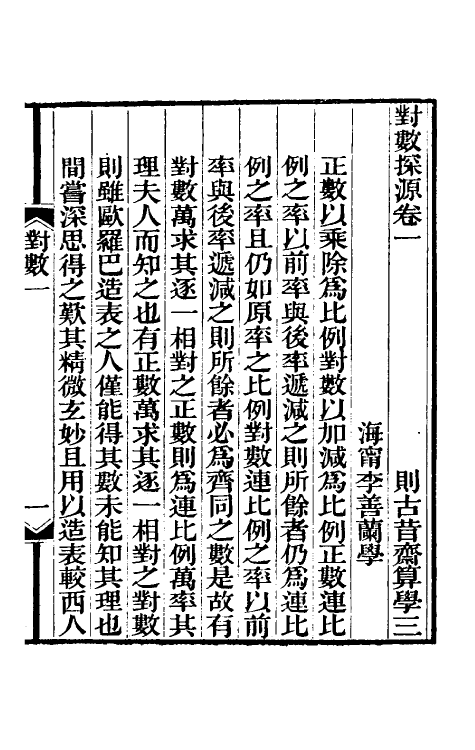 對數探源卷一　則古昔齋算學三
海甯李善蘭學
正數以乘除爲比例對數以加減爲比例正數連比
例之率以前率與後率遞減之則所餘者仍爲連比
例之率且仍如原率之比例對數連比例之率以前
率與後率遞減之則所餘者必爲齊同之數是故有
對數萬求其逐一相對之正數則爲連比例萬率其
理夫人而知之也有正數萬求其逐一相對之對數
則雖歐羅巴造表之人僅能得其數未能知其理也
間嘗深思得之歎其精微玄妙且用以造表較西人
對數一　一